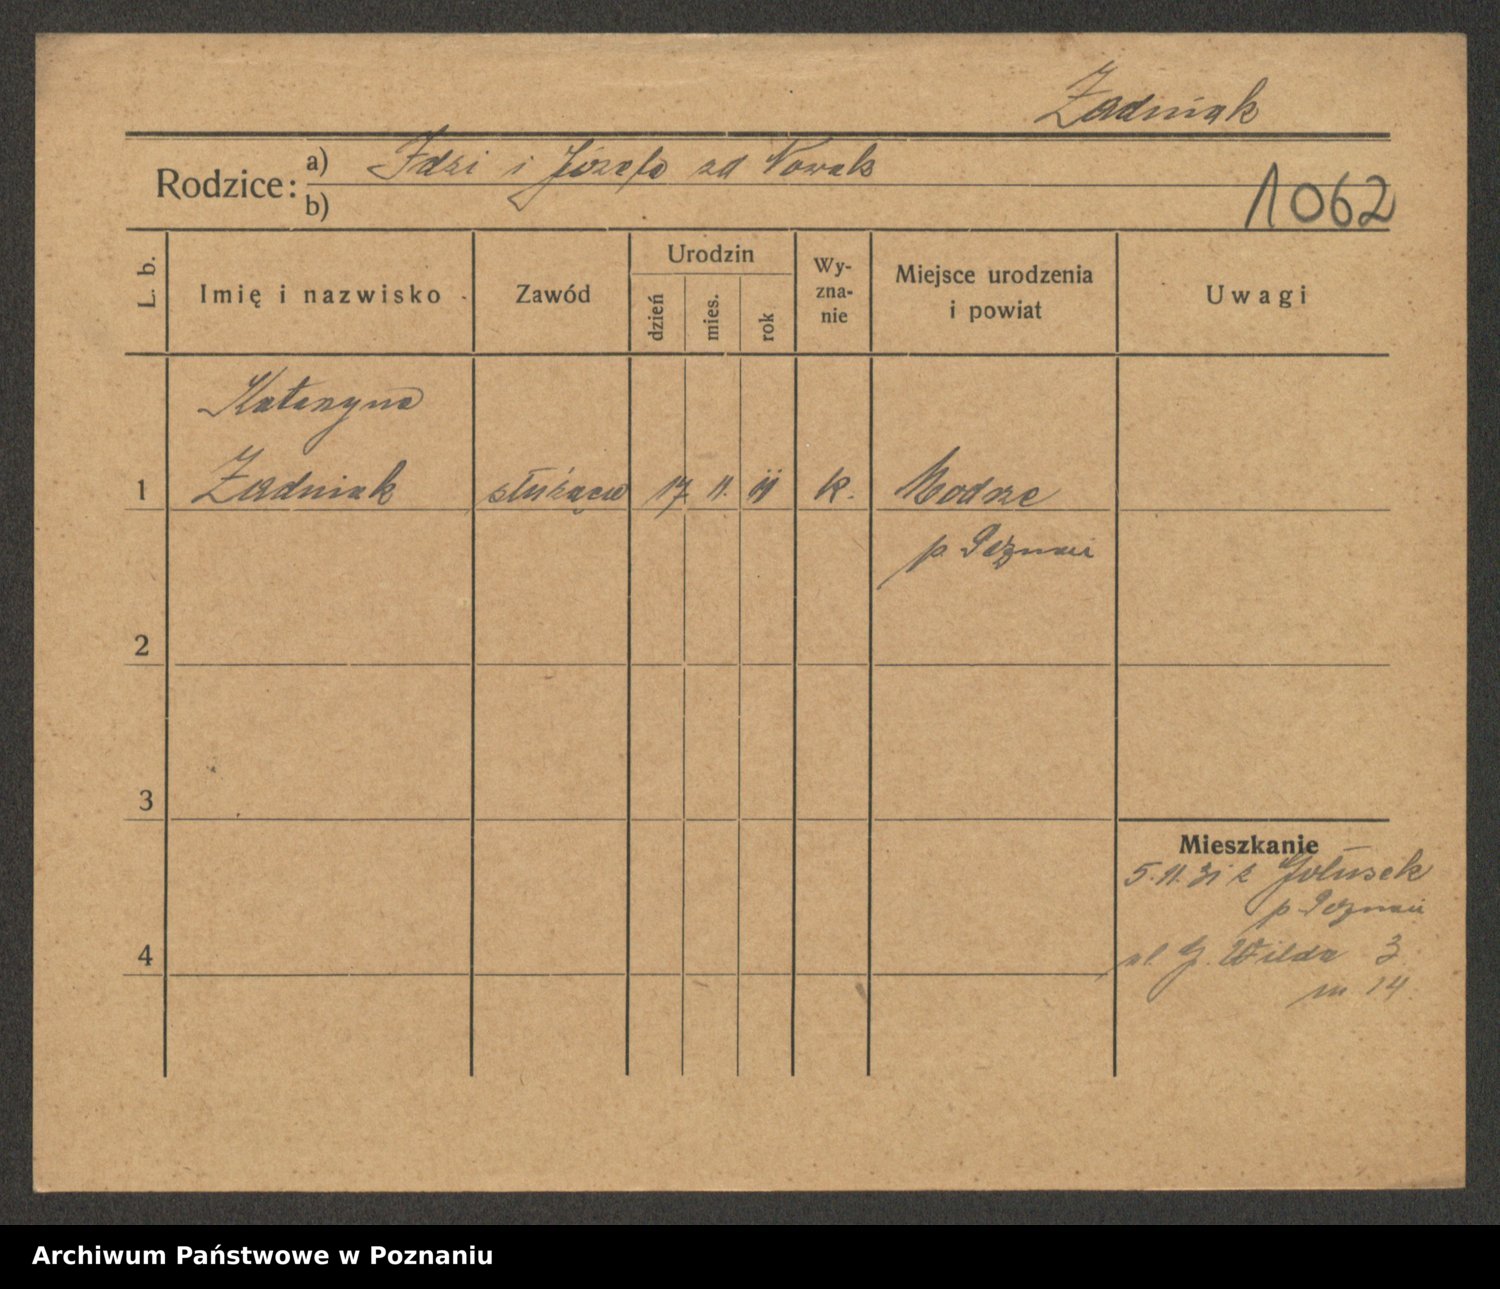 Żadniak
Rodzice: a) Idzi i Józefa zd Nowak
b)
1062
L. b.
Imię i nazwisko
Zawód
Urodzin
dzień
mies.
rok
Wy-
zna-
nie
Miejsce urodzenia
i powiat
Uwagi
Katarzyna
1 Żadniak służąca 17 11. K. Modrze
p. Poznań
2
3
4
Mieszkanie
5.11.31 z Gołusek
p. Poznań
ul. G. Wilda 3
m 14.
Archiwum Państwowe w Poznaniu